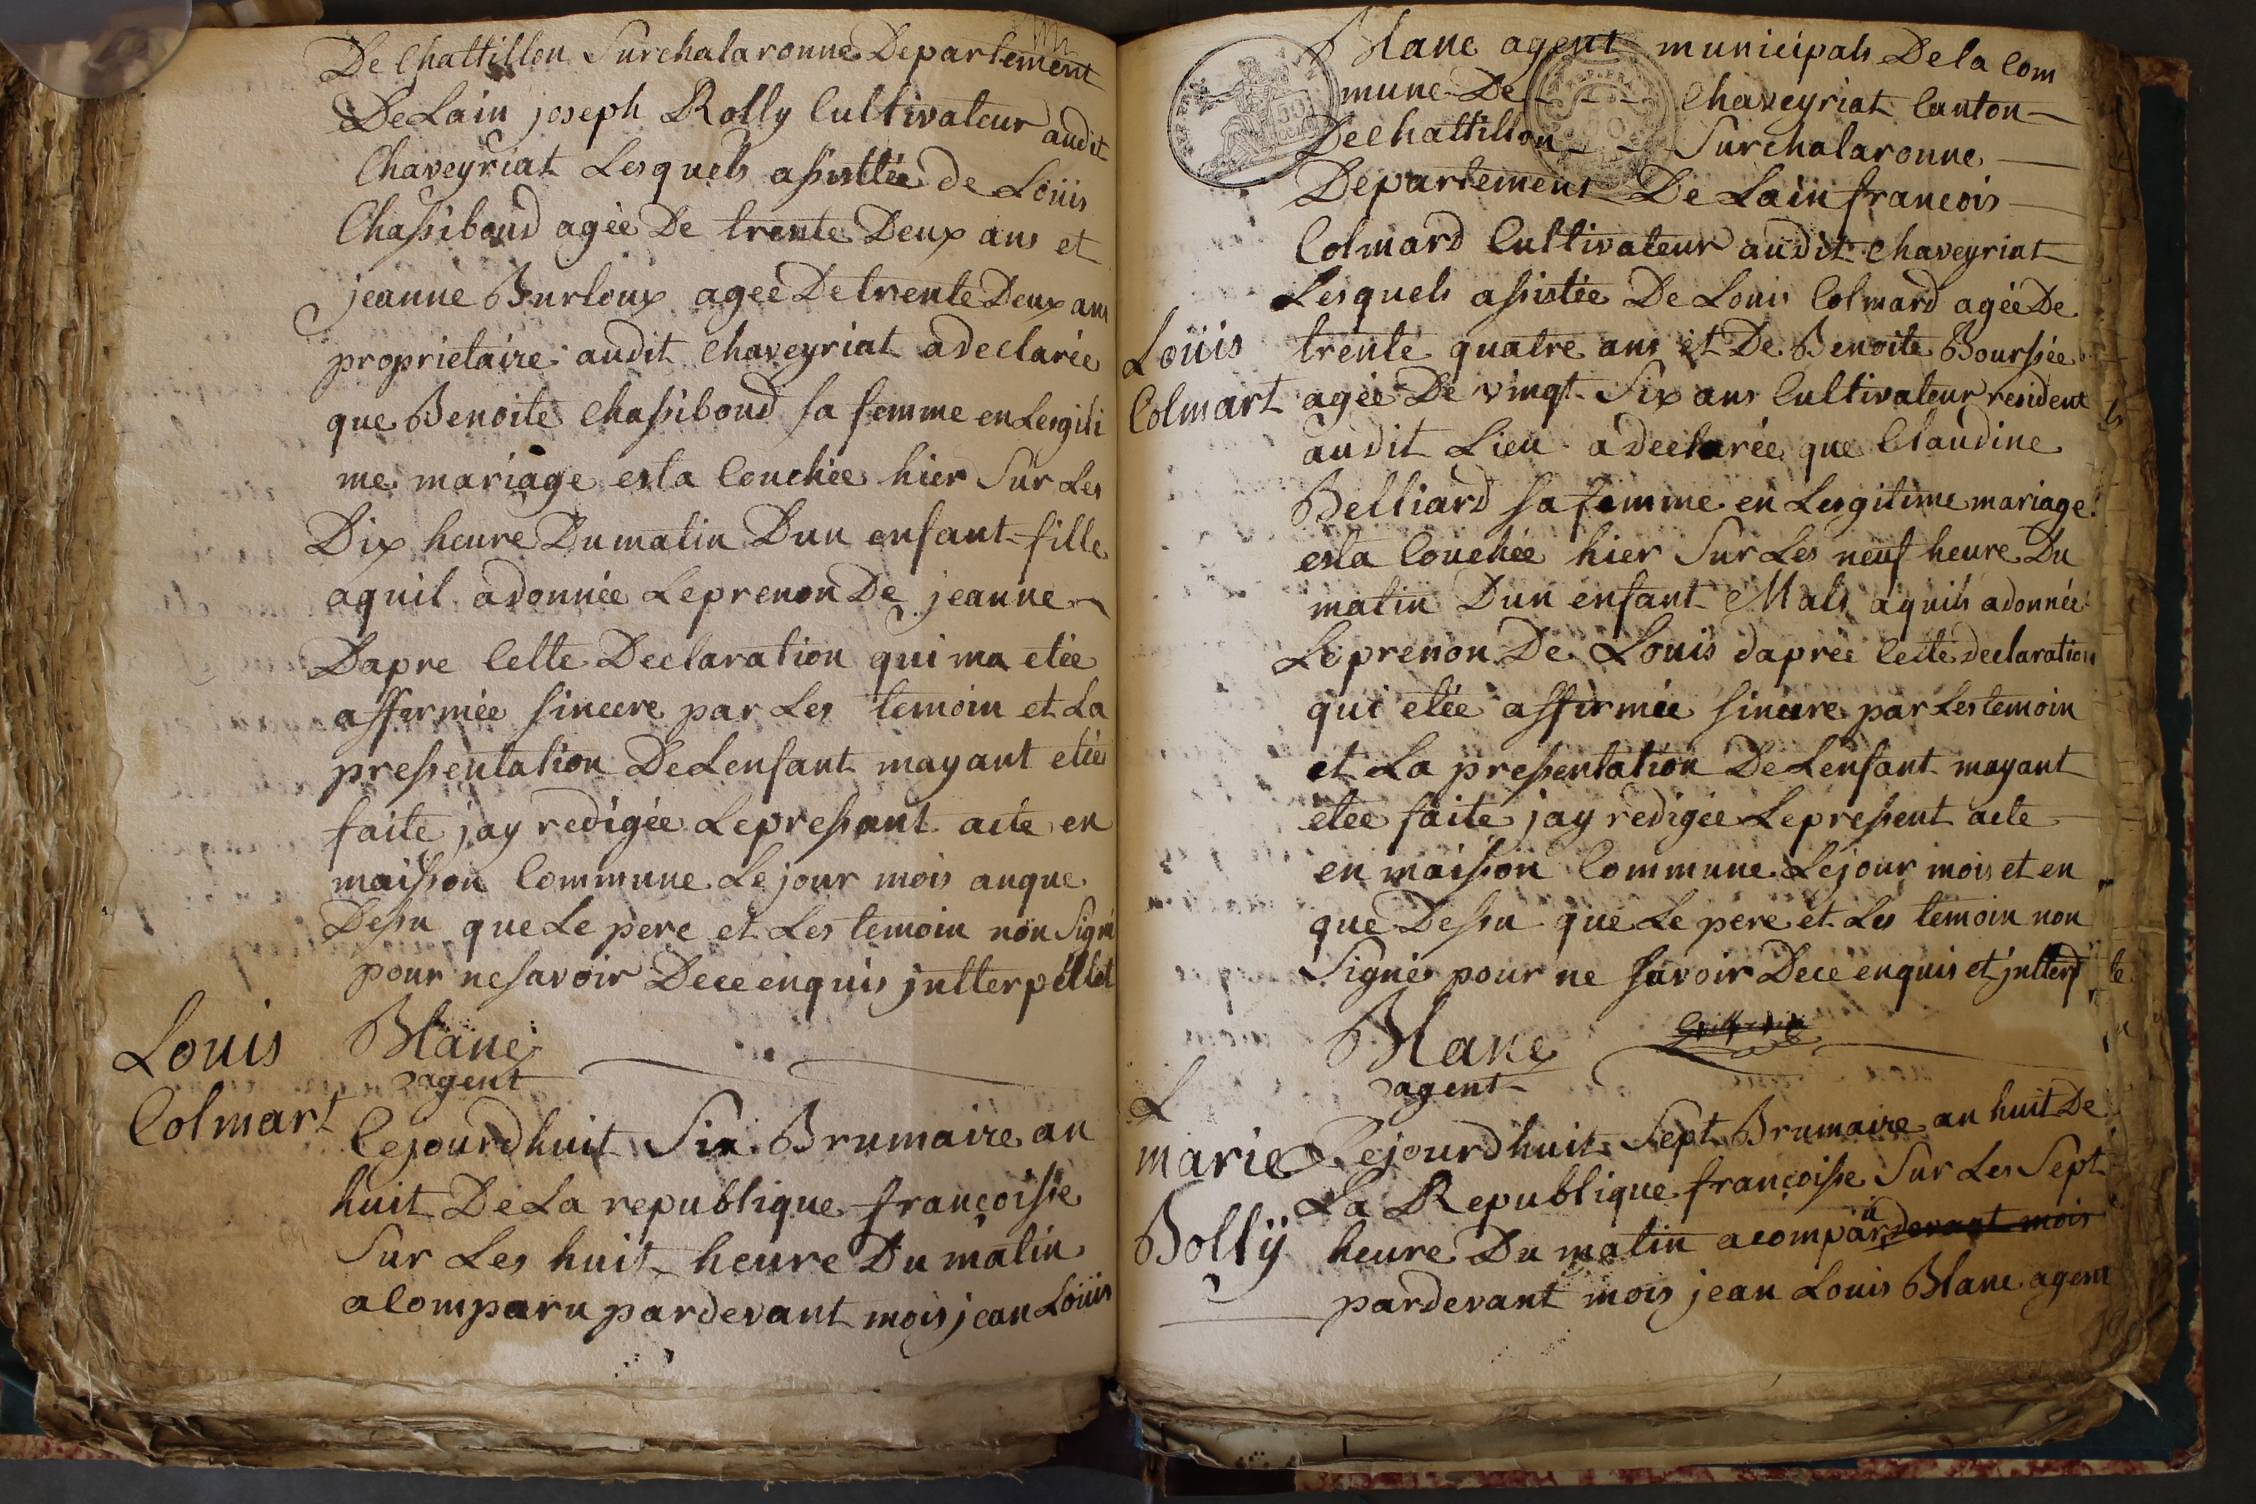 De Chattillon Surchalaronne Departement
De Lain joseph Rolly Cultivateur audit
Chaveyriat Lesquels assisttée de Loüis
Chassiboud agée De trente Deux ans et
jeanne Burloux agee De trente Deux ans
proprietaire audit chaveyriat adeclarée
que Benoite chassiboud sa femme en Lesgiti
me mariage esta Couchée hier Sur Les
Dix heure Dumatin Dun enfant fille
aquil adonnée Leprenon De jeanne
Dapre Cette Declaration qui ma etée
affermée sincere par Les temoin et La
pressentation DeLenfant mayant etée
faite jay redigée Lepressant acte en
maisson Commune Le jour mois anque
Dessu que Le pere et Les temoin non Signé
pour ne savoir Dece enquis jntterpéllét
Blanc
agent
Louis
Colmart
Cejourdhuit Six Brumaire an
huit De La republique françoisse
Sur Les huit heure Du matin
aComparu pardevant mois jean Loüis
Blanc agent municipals De la Com
mune De - - - Chaveyriat Canton
De Chattillon - - Surchalaronne
Departement De Lain francois
Colmard Cultivateur audit chaveyriat
Lesquels assistée De Louis Colmard agée De
Loüis
Colmart
trente quatre ans et De Benoite Bourssée
agée De vingt Six ans Cultivateur resident
audit Lieu adeclarée que Claudine
Belliard sa femme en Lesgitime mariage
esta Couchée hier Sur Les neuf heure Du
matin Dun enfant Mals aquils adonnée
Leprenon De Louis daprée Cette declaration
qui etée affirmée sincere par Les temoin
et La pressentation DeLenfant mayant
etee faite jay redigée Lepressent acte
en maisson Commune Lejour mois et en
que Dessu que Le pere et Les temoin non
Signés pour ne savoir Dece enquis et jntterp
Blanc
agent
L
marie
Bollÿ
Cejourdhuit Sept Brumaire an huit De
La Republique françoisse Sur Les Sept
heure Du matin acomparu devant mois
pardevant mois jean Louis Blanc agent